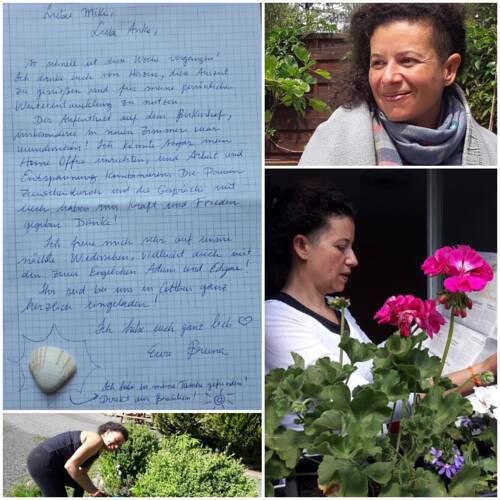 Liebe Miki,
Liebe Anke,
so schnell ist die Woche vergangen!
Ich danke euch von Herzen, diese Auszeit
zu genießen und für meine persönliche
Weiterentwicklung zu nutzen.
Der Aufenthalt auf dem
insbesondere in neuen Zimmer war
wunderschön! Ich konnte sogar mein
Home Office einrichten, und Arbeit und
Entspannung kombinieren. Die Pausen
zwischendurch und die Gespräche mit
euch haben mir Kraft und Frieden
gegeben. Danke!
Ich freue mich sehr auf unser
nächstes Wiedersehen, vielleicht auch mit
den zwei Engelchen Adam und Edgar!
Ihr seid bei uns in Cottbus ganz
herzlich eingeladen!
Ich habe euch ganz lieb ♡
Eure
Ich habe in meine Tasche gefunden!
Direkt aus Brasilien!